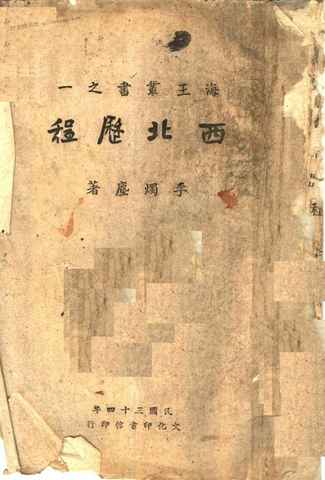 海王叢書之一
西北歷程
李燭塵著
民國三十四年
文化印書館印行
程